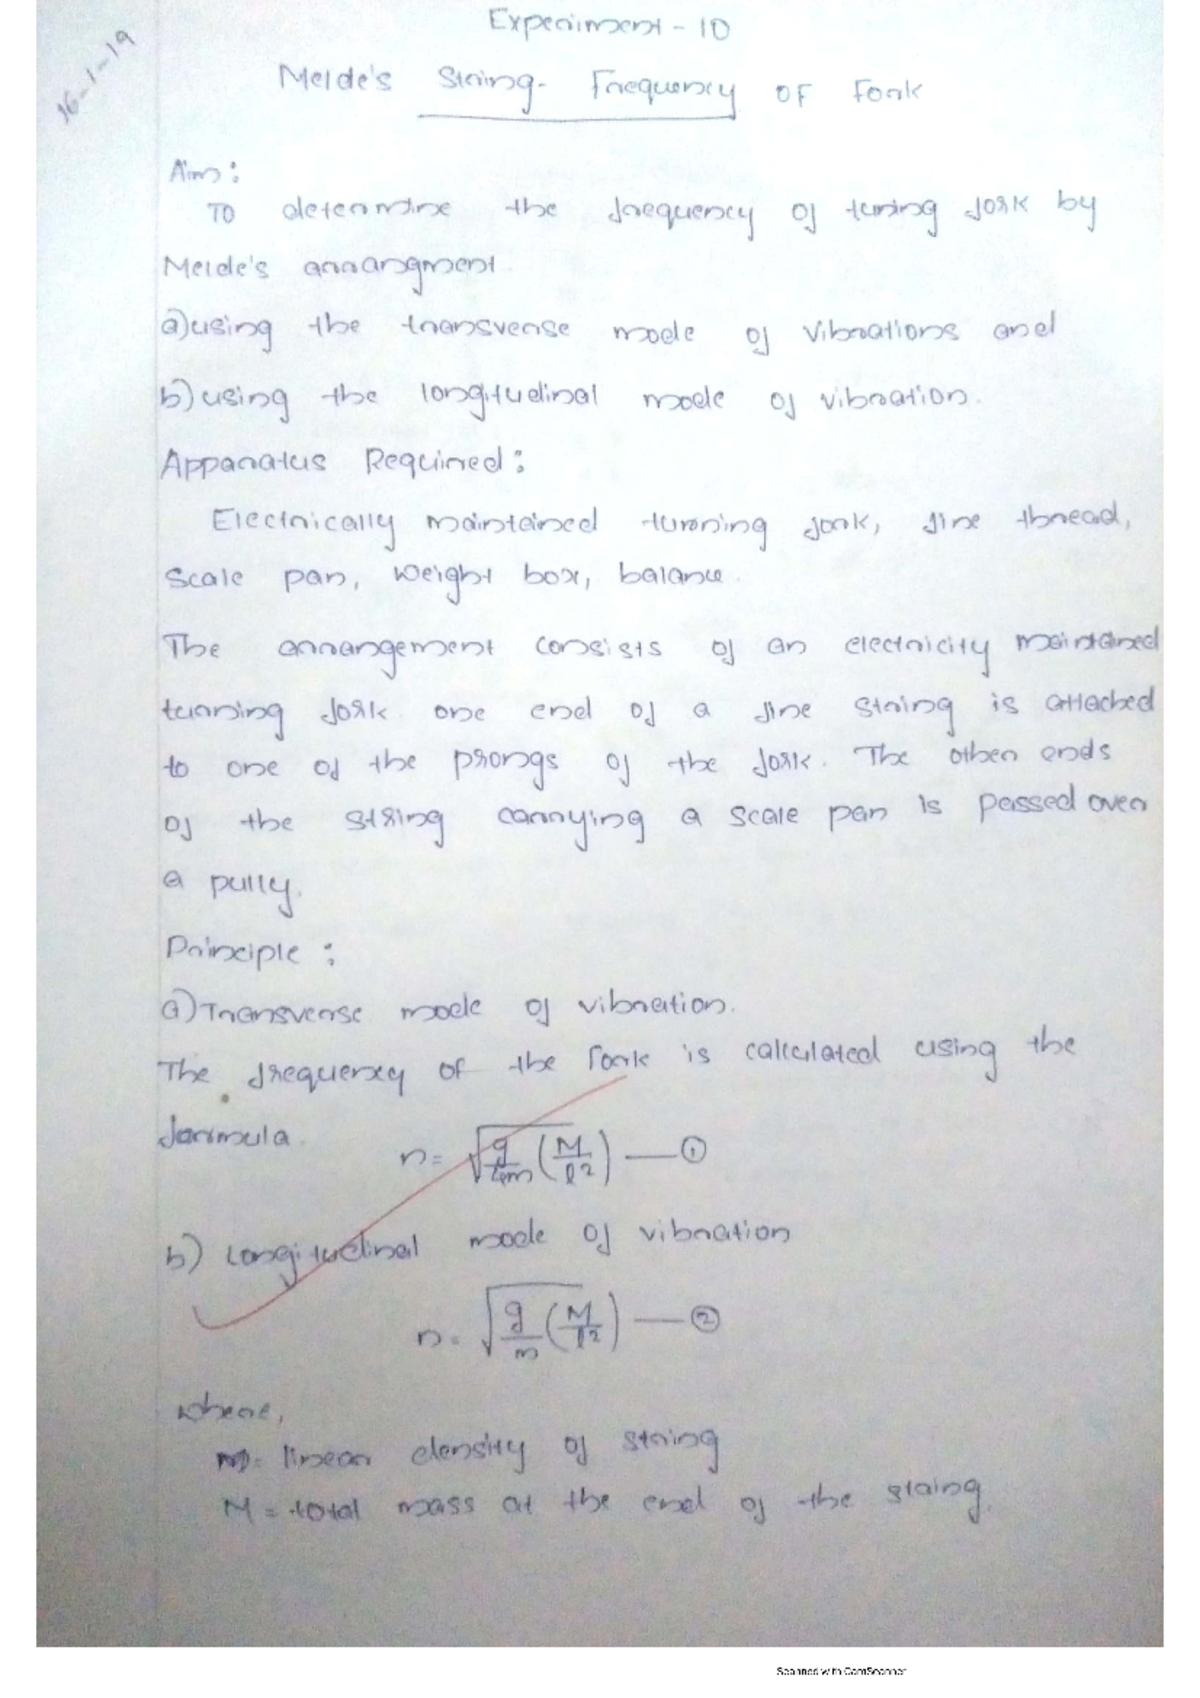 Experiment - 10
16-1-19
Melde's String- Frequency of Fork
Aim:
To determine the frequency of tuning fork by
Melde's arrangment
a) using the transverse mode of vibrations and
b) using the longitudinal mode of vibration.
Apparatus Required:
Electrically maintained tunning fork, fine thread,
scale pan, weight box, balance.
The arrangement consists of an electricity maintained
tunning fork one end of a fine string is attached
to one of the prongs of the fork. The other ends
of the string carrying a scale pan is passed over
a pully.
Principle :
a) Transverse mode of vibration.
The frequency of the fork is calculated using the
formula
n = √(g/4m (M/l²)) — ①
b) Longitudinal mode of vibration
n = √(g/m (M/l²)) — ②
where,
m = linear density of string
M = total mass at the end of the string.
Scanned with CamScanner